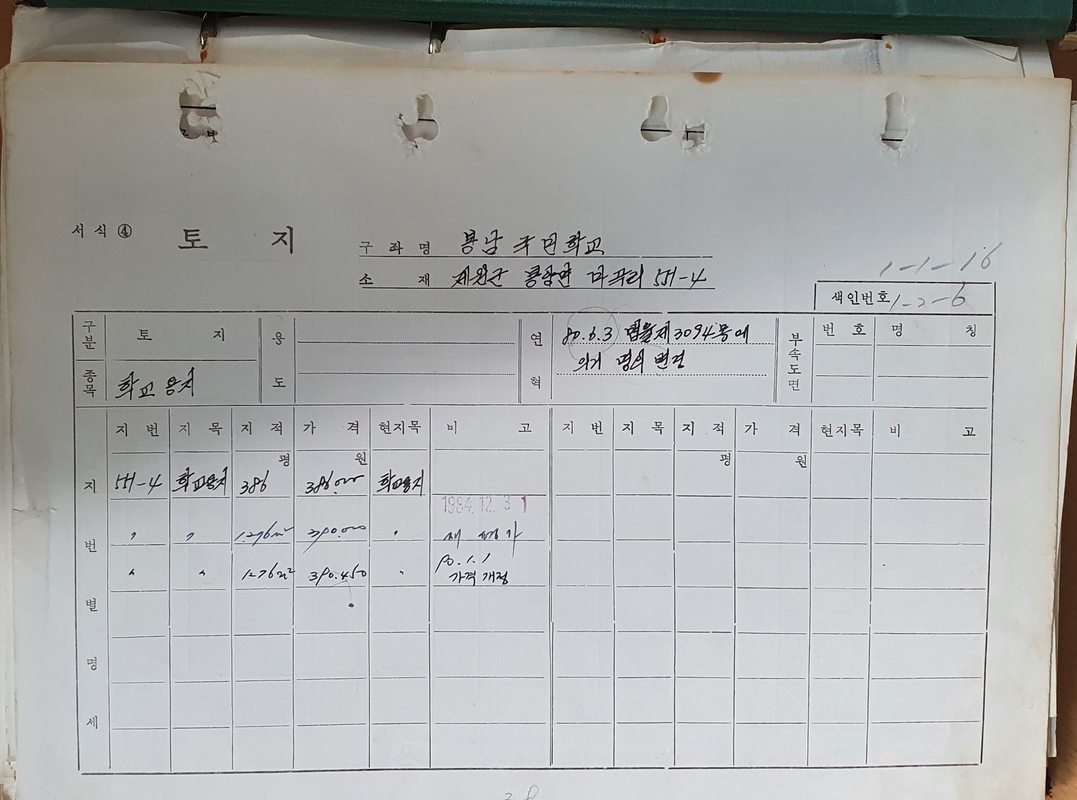 서식 ④ 토 지
구 좌 명 봉남국민학교
소 재 제원군 봉양면 마곡리 551-4
1-1-16
색인번호 1-2-6
구분 토 지 용도 연혁 80.6.3 법률제3094호에 부속도면 번 호 명 칭
의거 명의 변경
종목 학교용지
지번별명세
지 번 지 목 지 적 가 격 현지목 비 고 지 번 지 목 지 적 가 격 현지목 비 고
평 원 평 원
551-4 학교용지 386 386.000 학교용지
1984.12.31
〃 〃 1.276㎡ 390.000 〃 재평가
〃 〃 1276㎡ 390.450 〃 가격개정